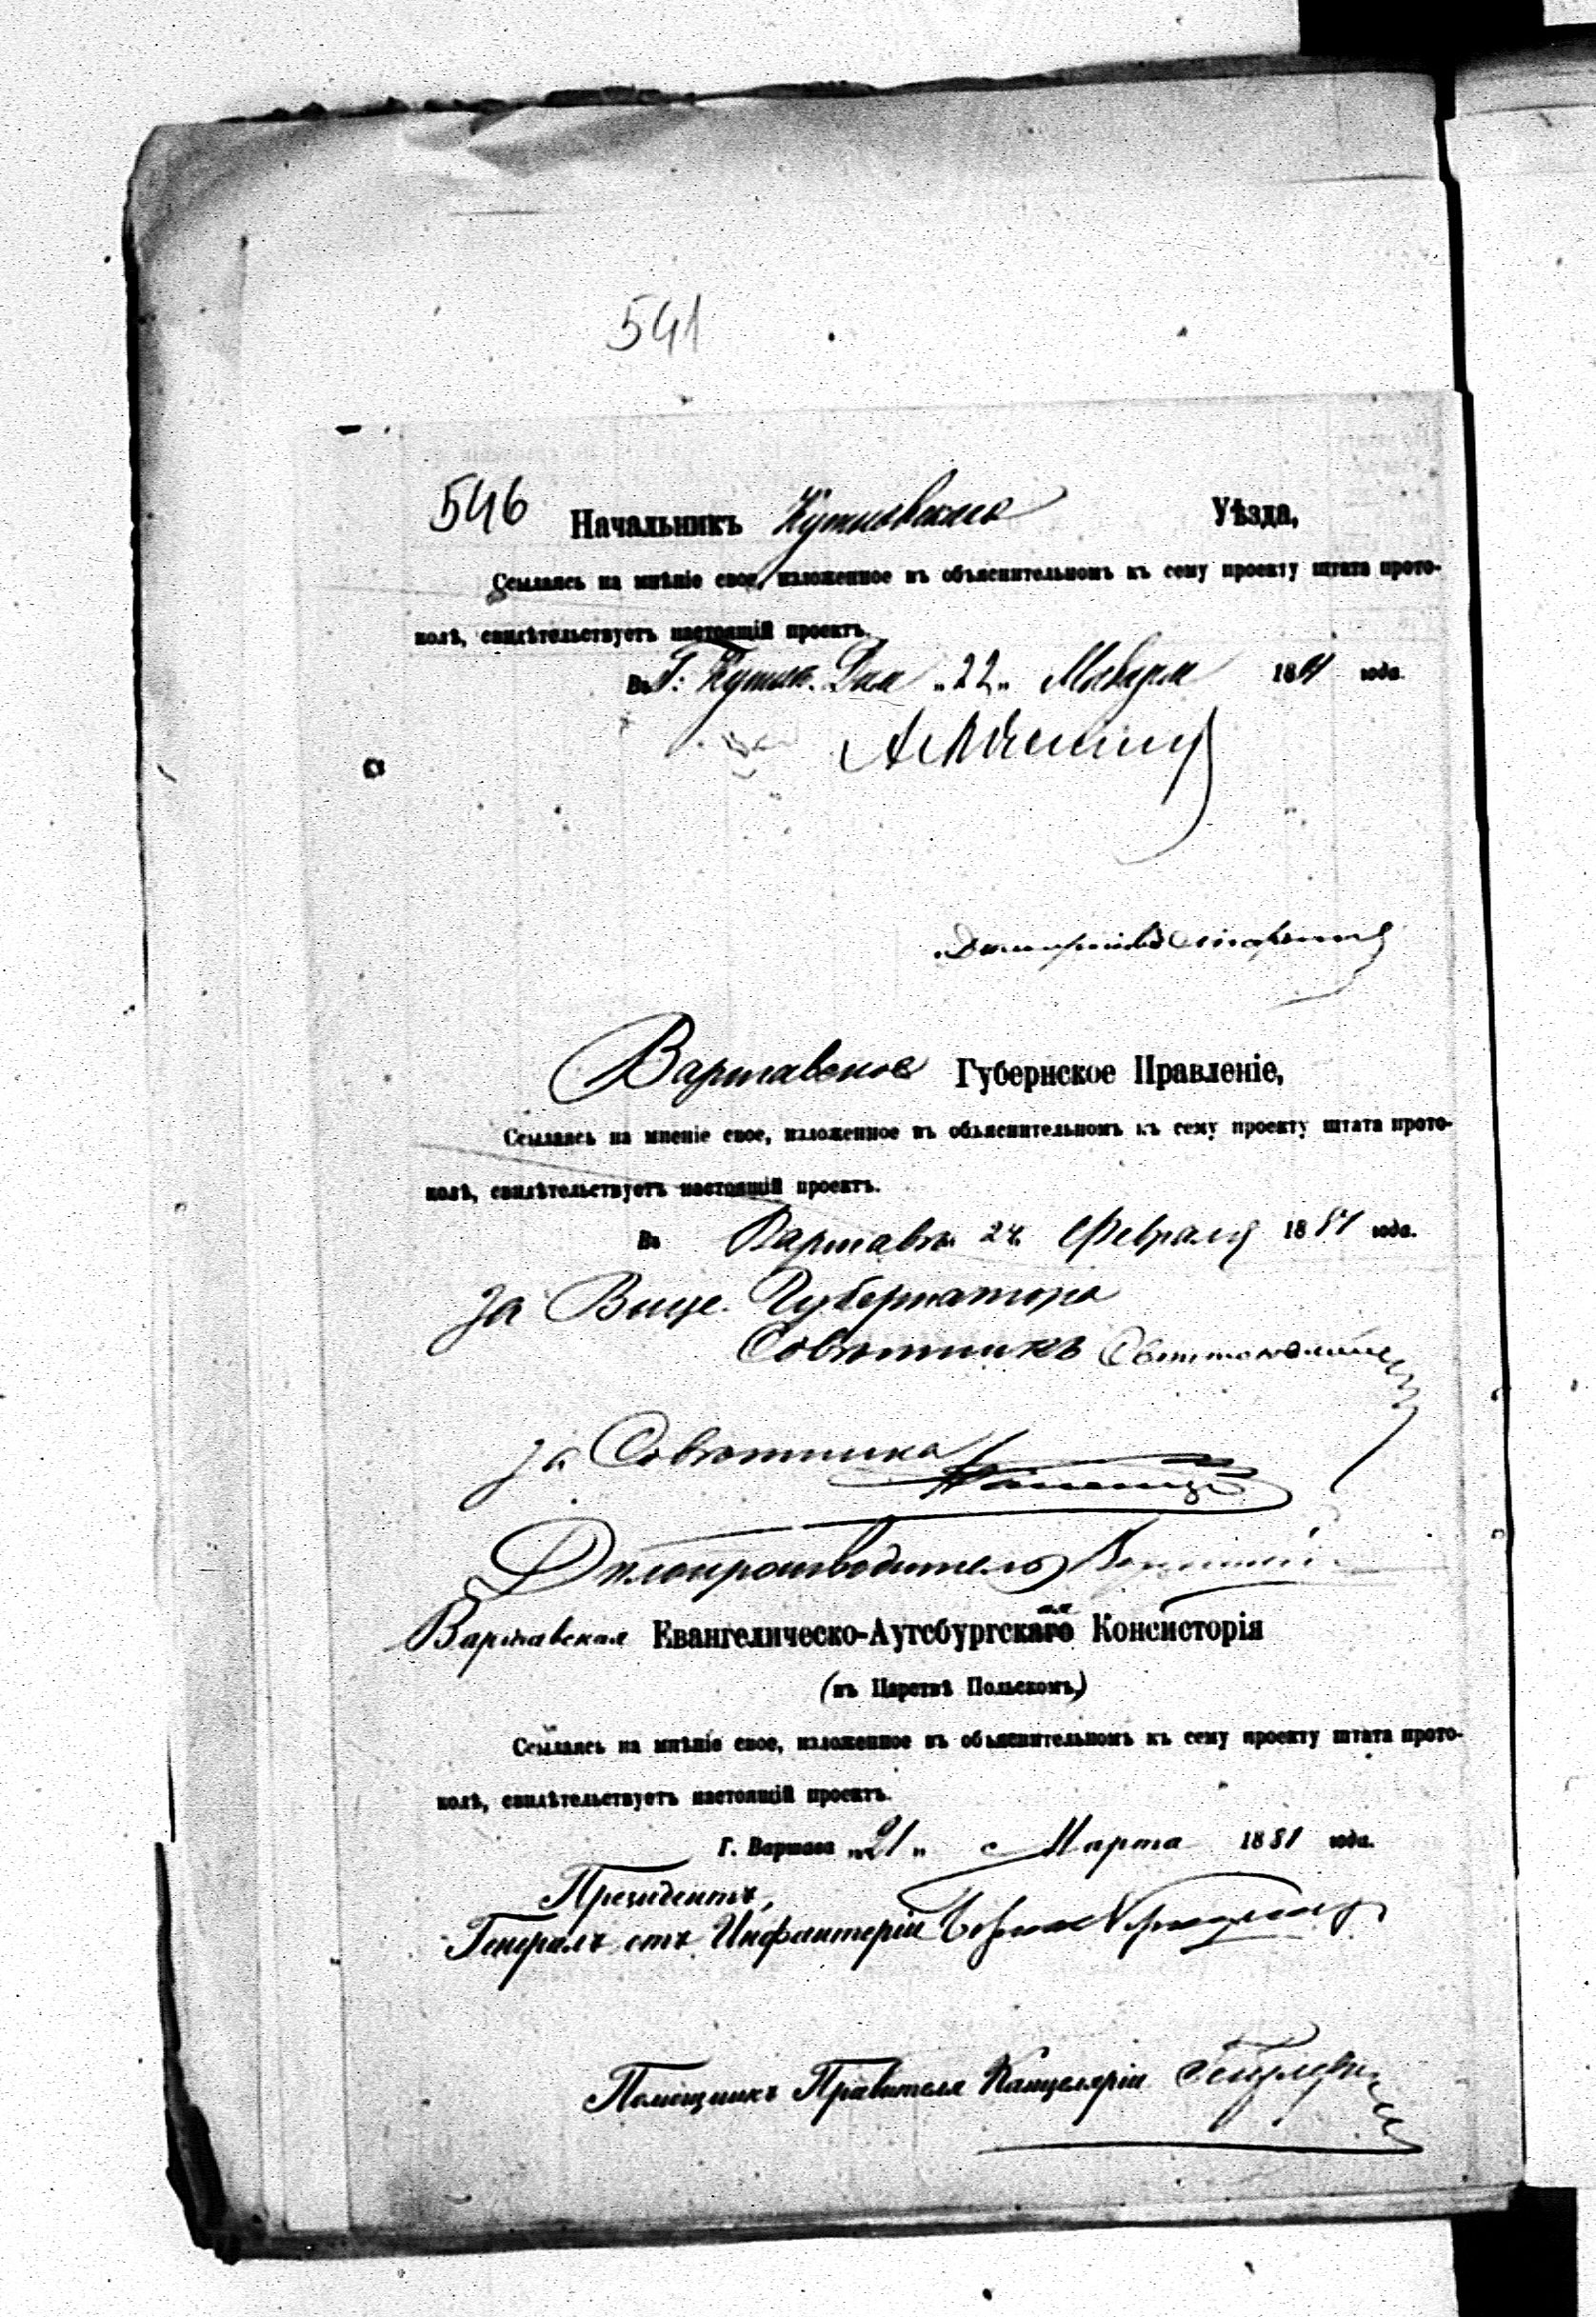 541
546 Начальникъ Кутновскаго Уѣзда,
Ссылаясь на мнѣніе свое, изложенное въ объяснительномъ къ сему проекту штата прото-
колѣ, свидѣтельствуетъ настоящій проектъ.
Въ Г. Кутнѣ. Дня "22" 18 года.
Варшавское Губернское Правленіе,
Ссылаясь на мненіе свое, изложенное въ объяснительномъ къ сему проекту штата прото-
колѣ, свидѣтельствуетъ настоящій проектъ.
Въ Варшавѣ 24 Февраля 1881 года.
За Вице. Губернатора
Совѣтникъ
За Совѣтника
Дѣлопроизводитель
Варшавская Евангелическо-Аугсбургскаго ая Консисторія
(въ Царствѣ Польскомъ)
Ссылаясь на мнѣніе свое, изложенное въ объяснительномъ къ сему проекту штата прото-
колѣ, свидѣтельствуетъ настоящій проектъ.
Г. Варшава "21" Марта 1881 года.
Президентъ,
Генералъ отъ Инфантеріи
Помощникъ Правителя Канцеляріи